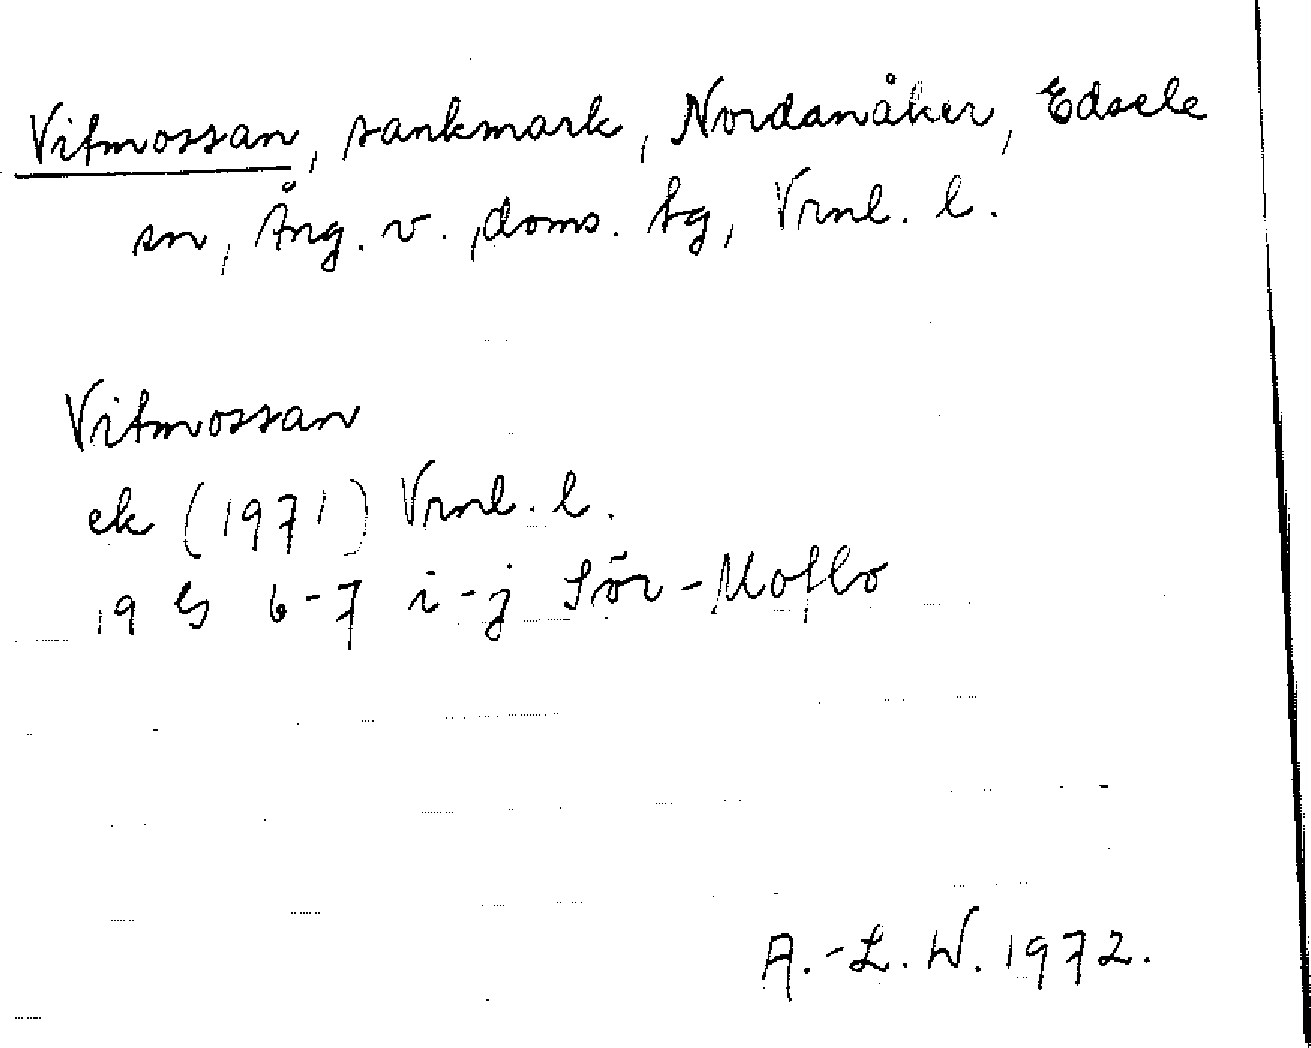 Vitmossan, sankmark, Nordanåker, Edsele
sn, Ång. v. doms. tg, Vrnl. l.
Vitmossan
ek (1971) Vrnl. l.
19 G 6-7 i-j Sör-Moflo
A.-L. W. 1972.